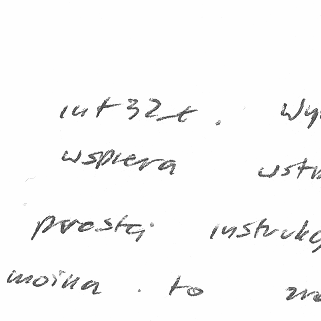 int32t. Wy
wspiera wst
prostą instrukc
można to